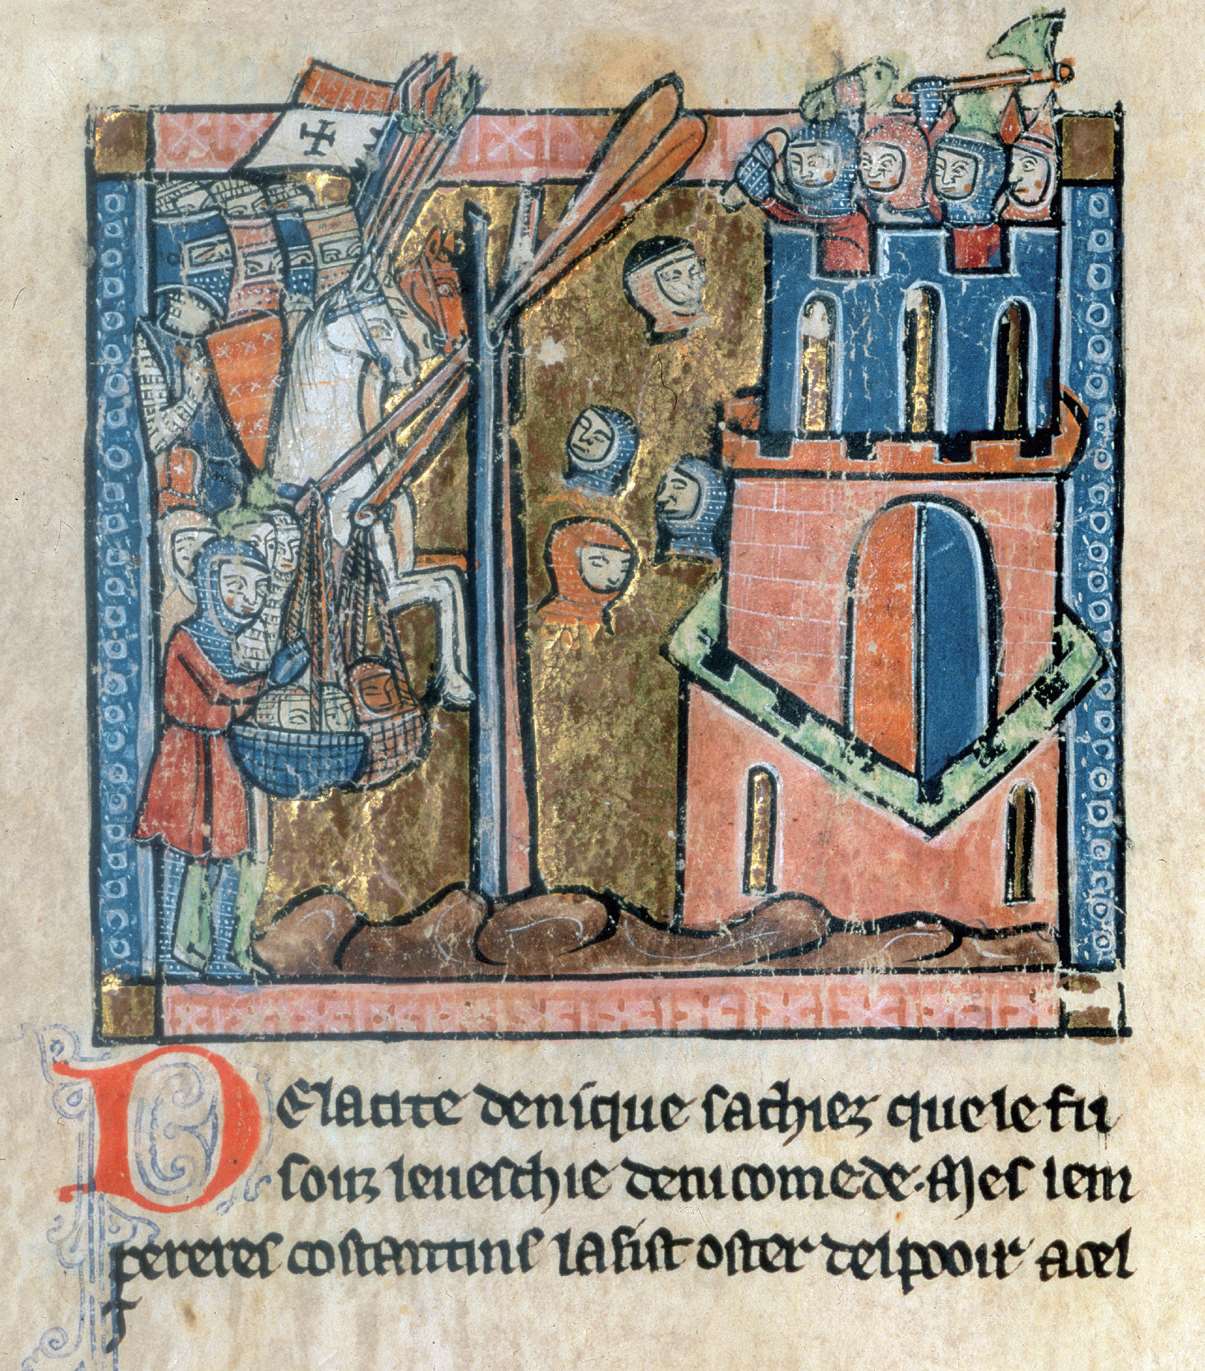 DE la cite de nique sachiez que le fu
souz leueschie de nicomede. Mes lem
pereres costantins la fist oster del pooir a cel